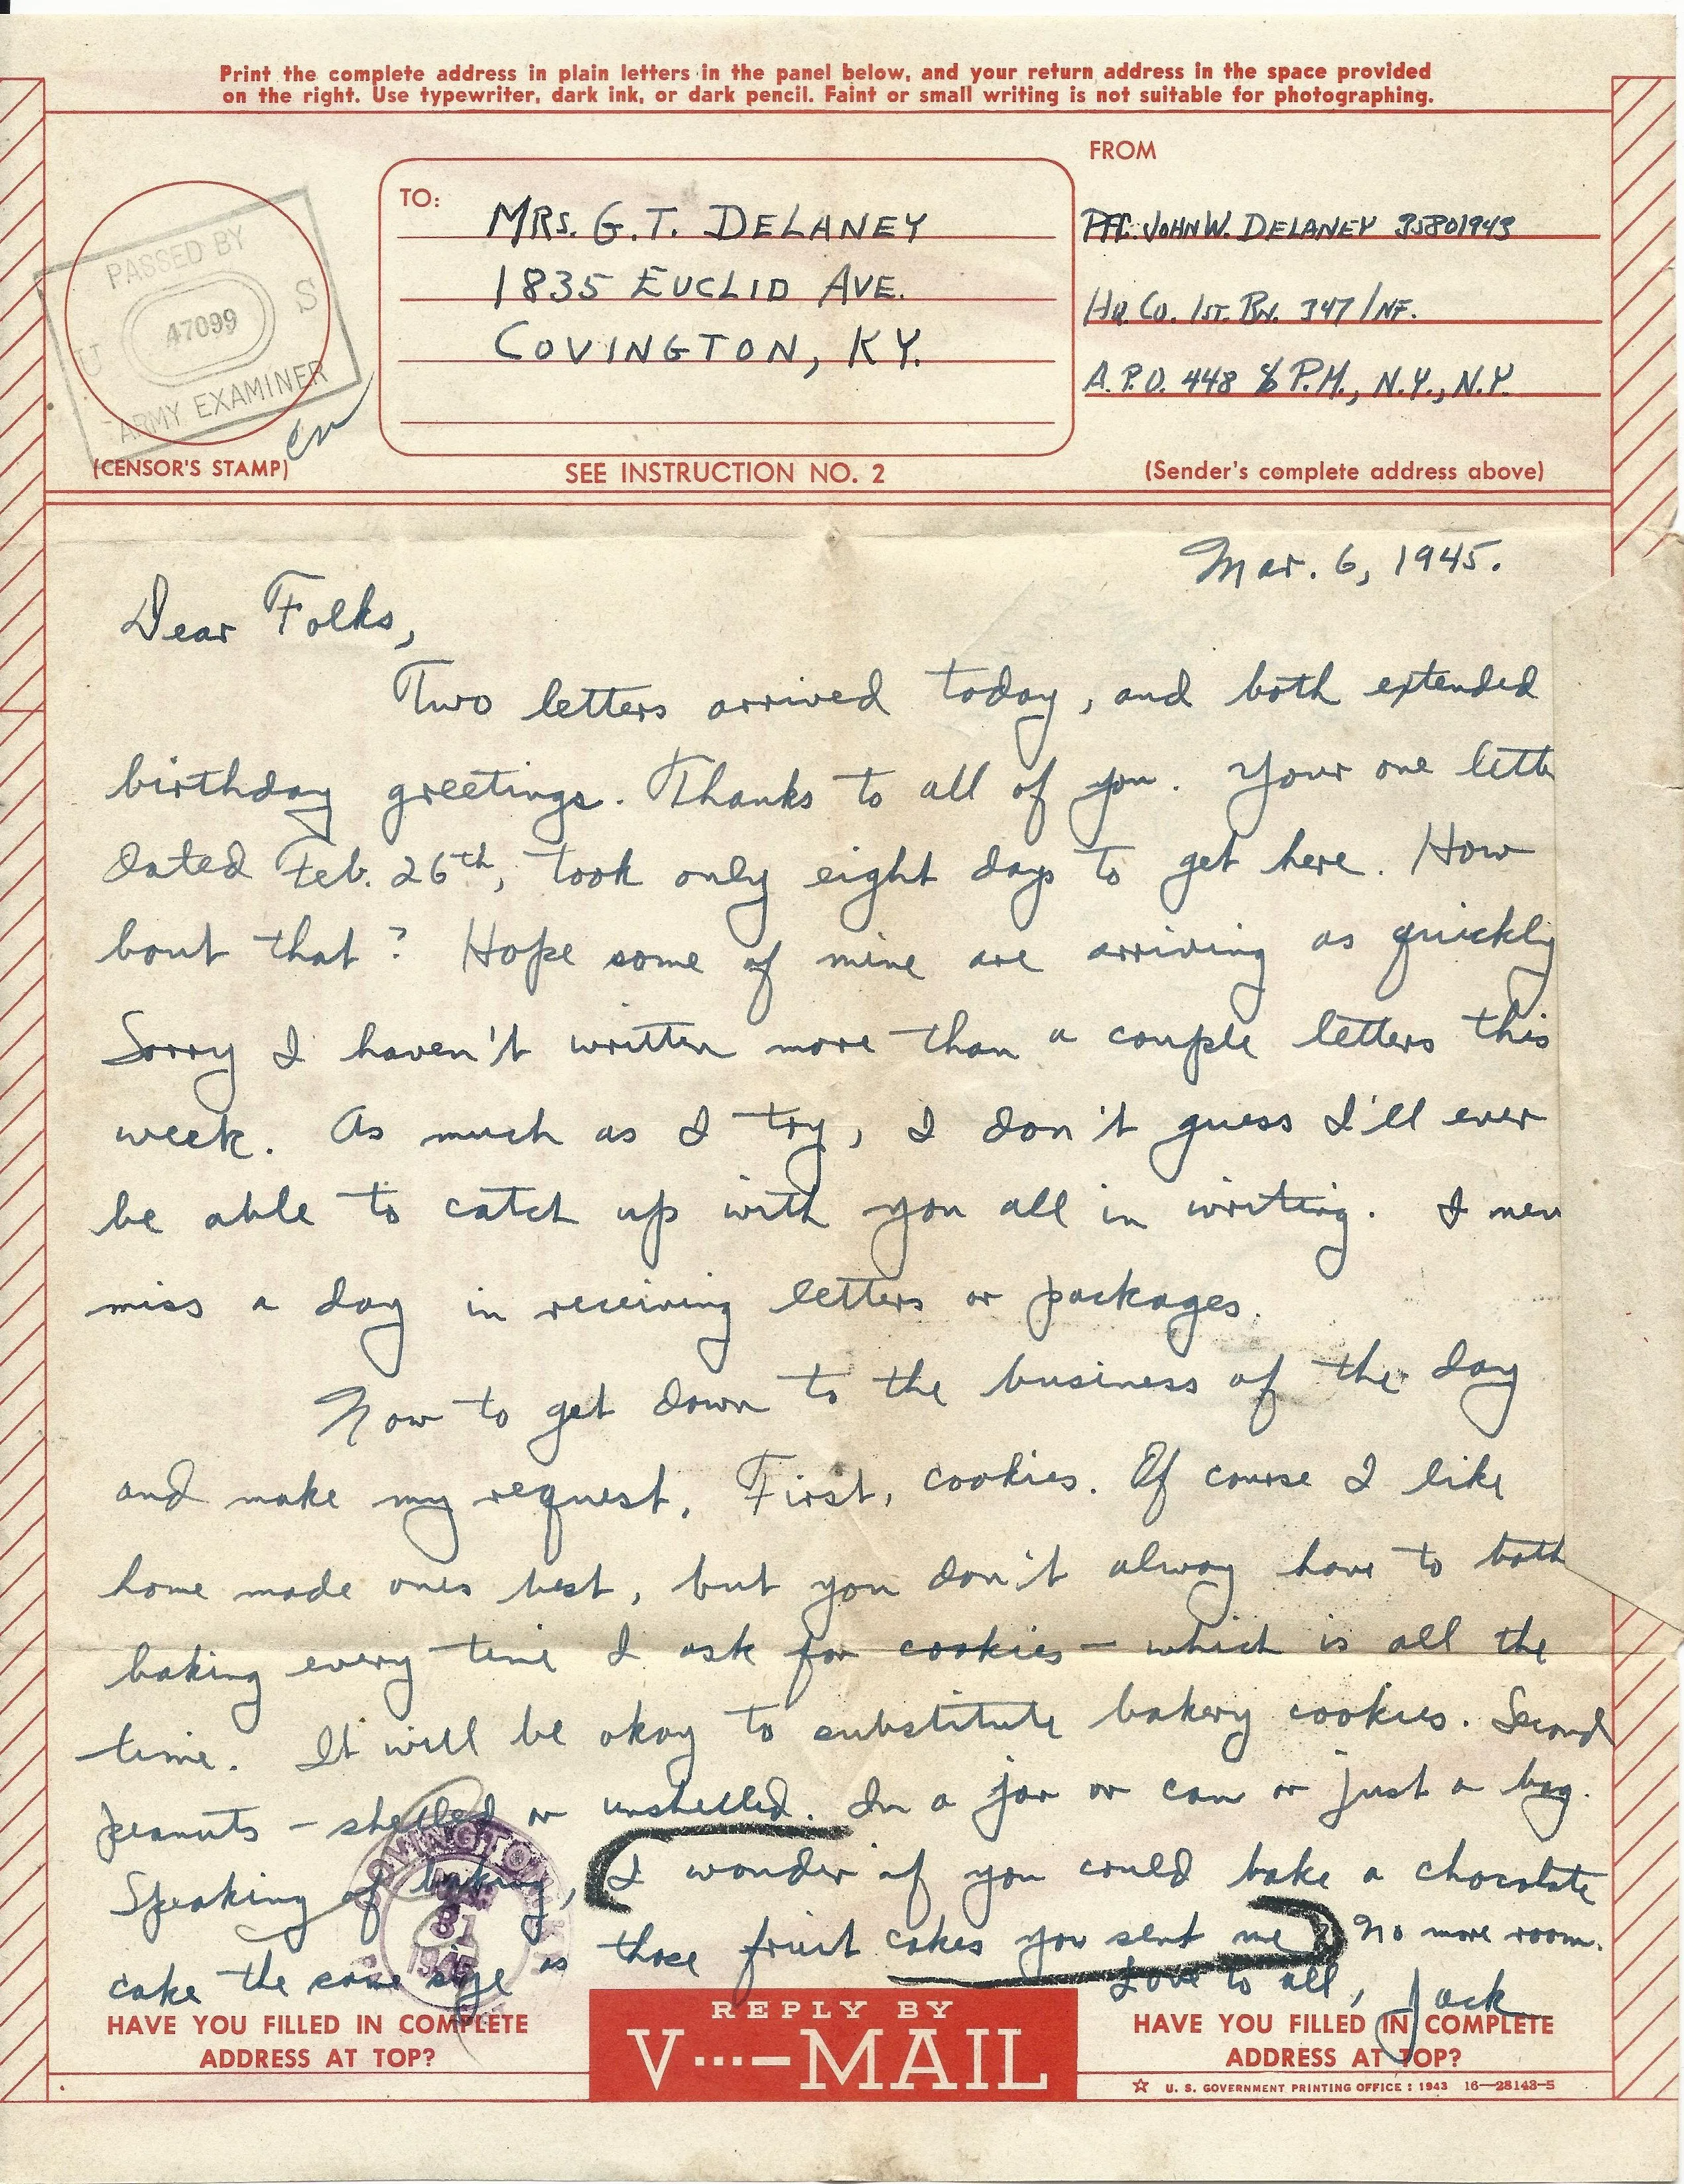 Print the complete address in plain letters in the panel below, and your return address in the space provided
on the right. Use typewriter, dark ink, or dark pencil. Faint or small writing is not suitable for photographing.
FROM
TO:
MRS. G.T. DELANEY
1835 EUCLID AVE.
COVINGTON, KY.
PFC. JOHN W. DELANEY 35801943
HQ. CO. 1ST. BN. 347 INF.
A.P.O. 448 % P.M., N.Y., N.Y.
PASSED BY
U 47099 S
ARMY EXAMINER
(CENSOR'S STAMP)
SEE INSTRUCTION NO. 2
(Sender's complete address above)
Mar. 6, 1945.
Dear Folks,
Two letters arrived today, and both extended
birthday greetings. Thanks to all of you. Your one lette
dated Feb. 26th, took only eight days to get here. How
bout that? Hope some of mine are arriving as quickly
Sorry I haven't written more than a couple letters this
week. As much as I try, I don't guess I'll ever
be able to catch up with you all in writing. I nev
miss a day in receiving letters or packages.
Now to get down to the business of the day
and make my request. First, cookies. Of course I like
home made ones best, but you don't alway have to both
baking every time I ask for cookies – which is all the
time. It will be okay to substitute bakery cookies. Second
peanuts – shelled or unshelled. In a jar or can or just a bag.
Speaking of baking, I wonder if you could bake a chocolate
cake the same size as those fruit cakes you sent me? No more room.
Love to all, Jack
COVINGTON
31
1945
HAVE YOU FILLED IN COMPLETE
ADDRESS AT TOP?
REPLY BY
V···—MAIL
HAVE YOU FILLED IN COMPLETE
ADDRESS AT TOP?
☆ U. S. GOVERNMENT PRINTING OFFICE : 1943 16—28143-5